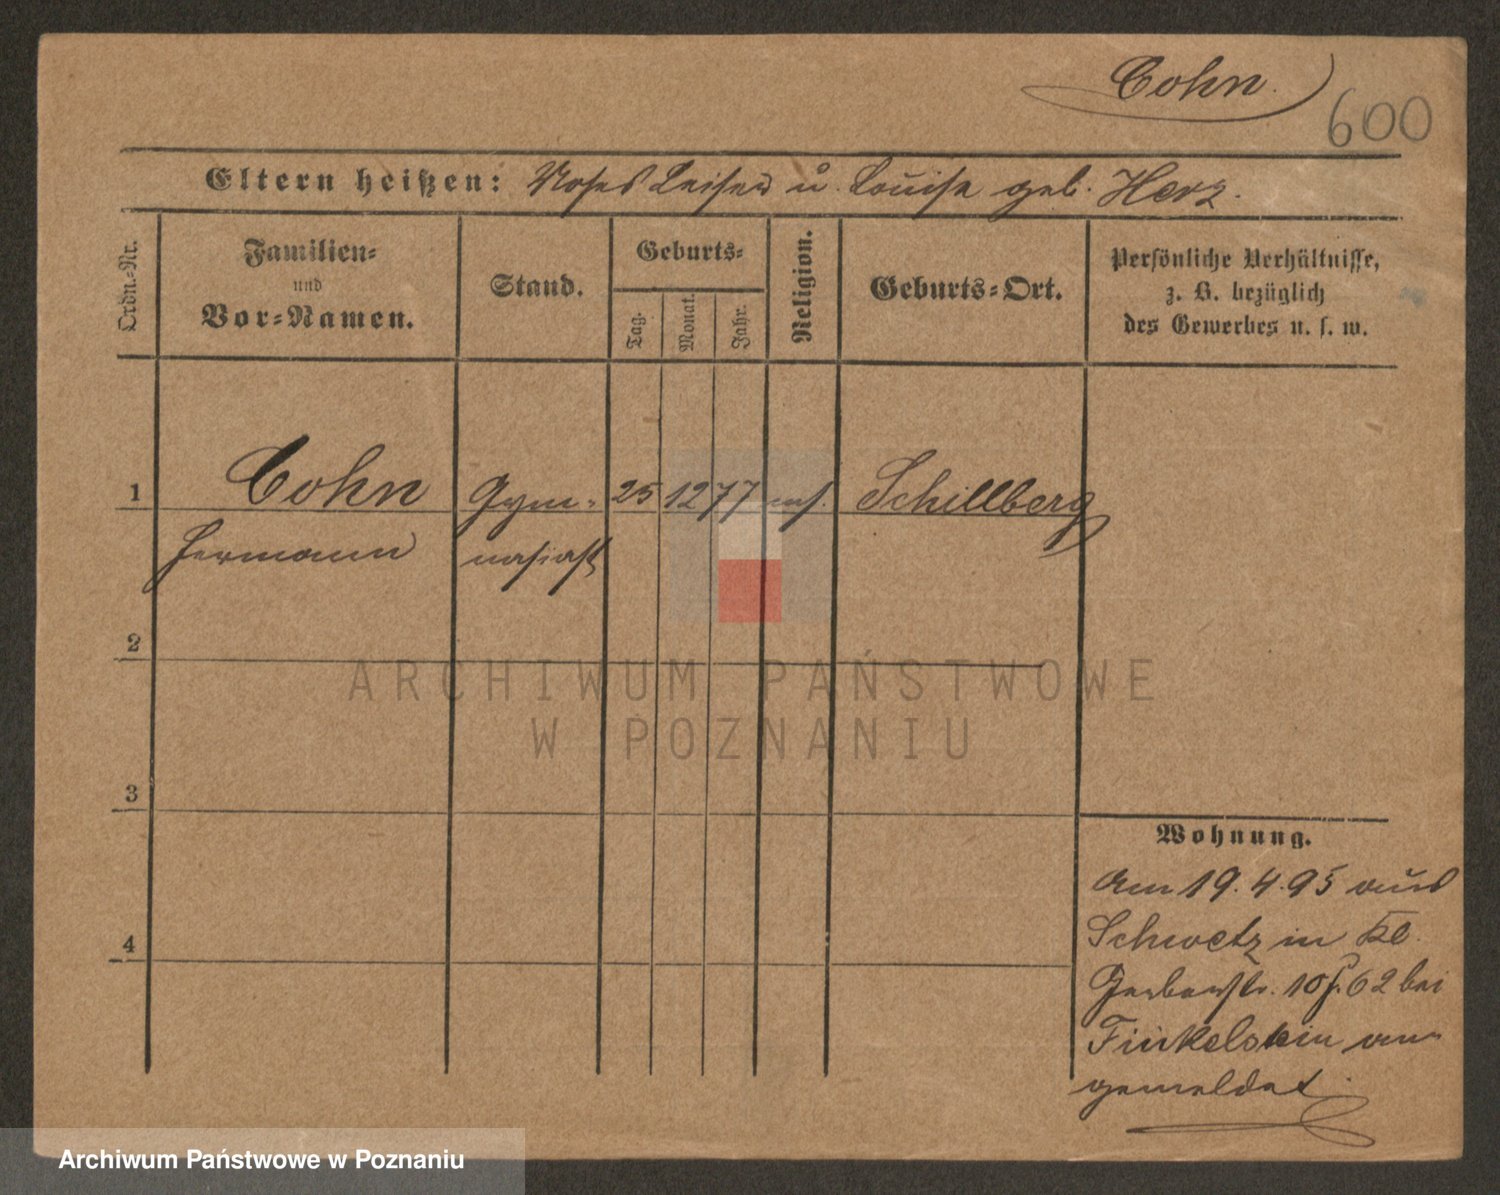 Cohn.
600
Eltern heißen: Moses Leiser u. Louise geb. Herz.
Ordn.-Nr.
Familien-
und
Vor-Namen.
Stand.
Geburts-
Tag.
Monat.
Jahr.
Religion.
Geburts-Ort.
Persönliche Verhältnisse,
z. B. bezüglich
des Gewerbes u. s. w.
1 Cohn Gym- 25 12 77 mos. Schillberg
Hermann nasiast
2
ARCHIWUM PAŃSTWOWE
W POZNANIU
3
Wohnung.
Am 19.4.95 aus
4
Schwetz in Kl.
Gerberstr. 10 62 bei
Finkelstein an-
gemeldet.
Archiwum Państwowe w Poznaniu